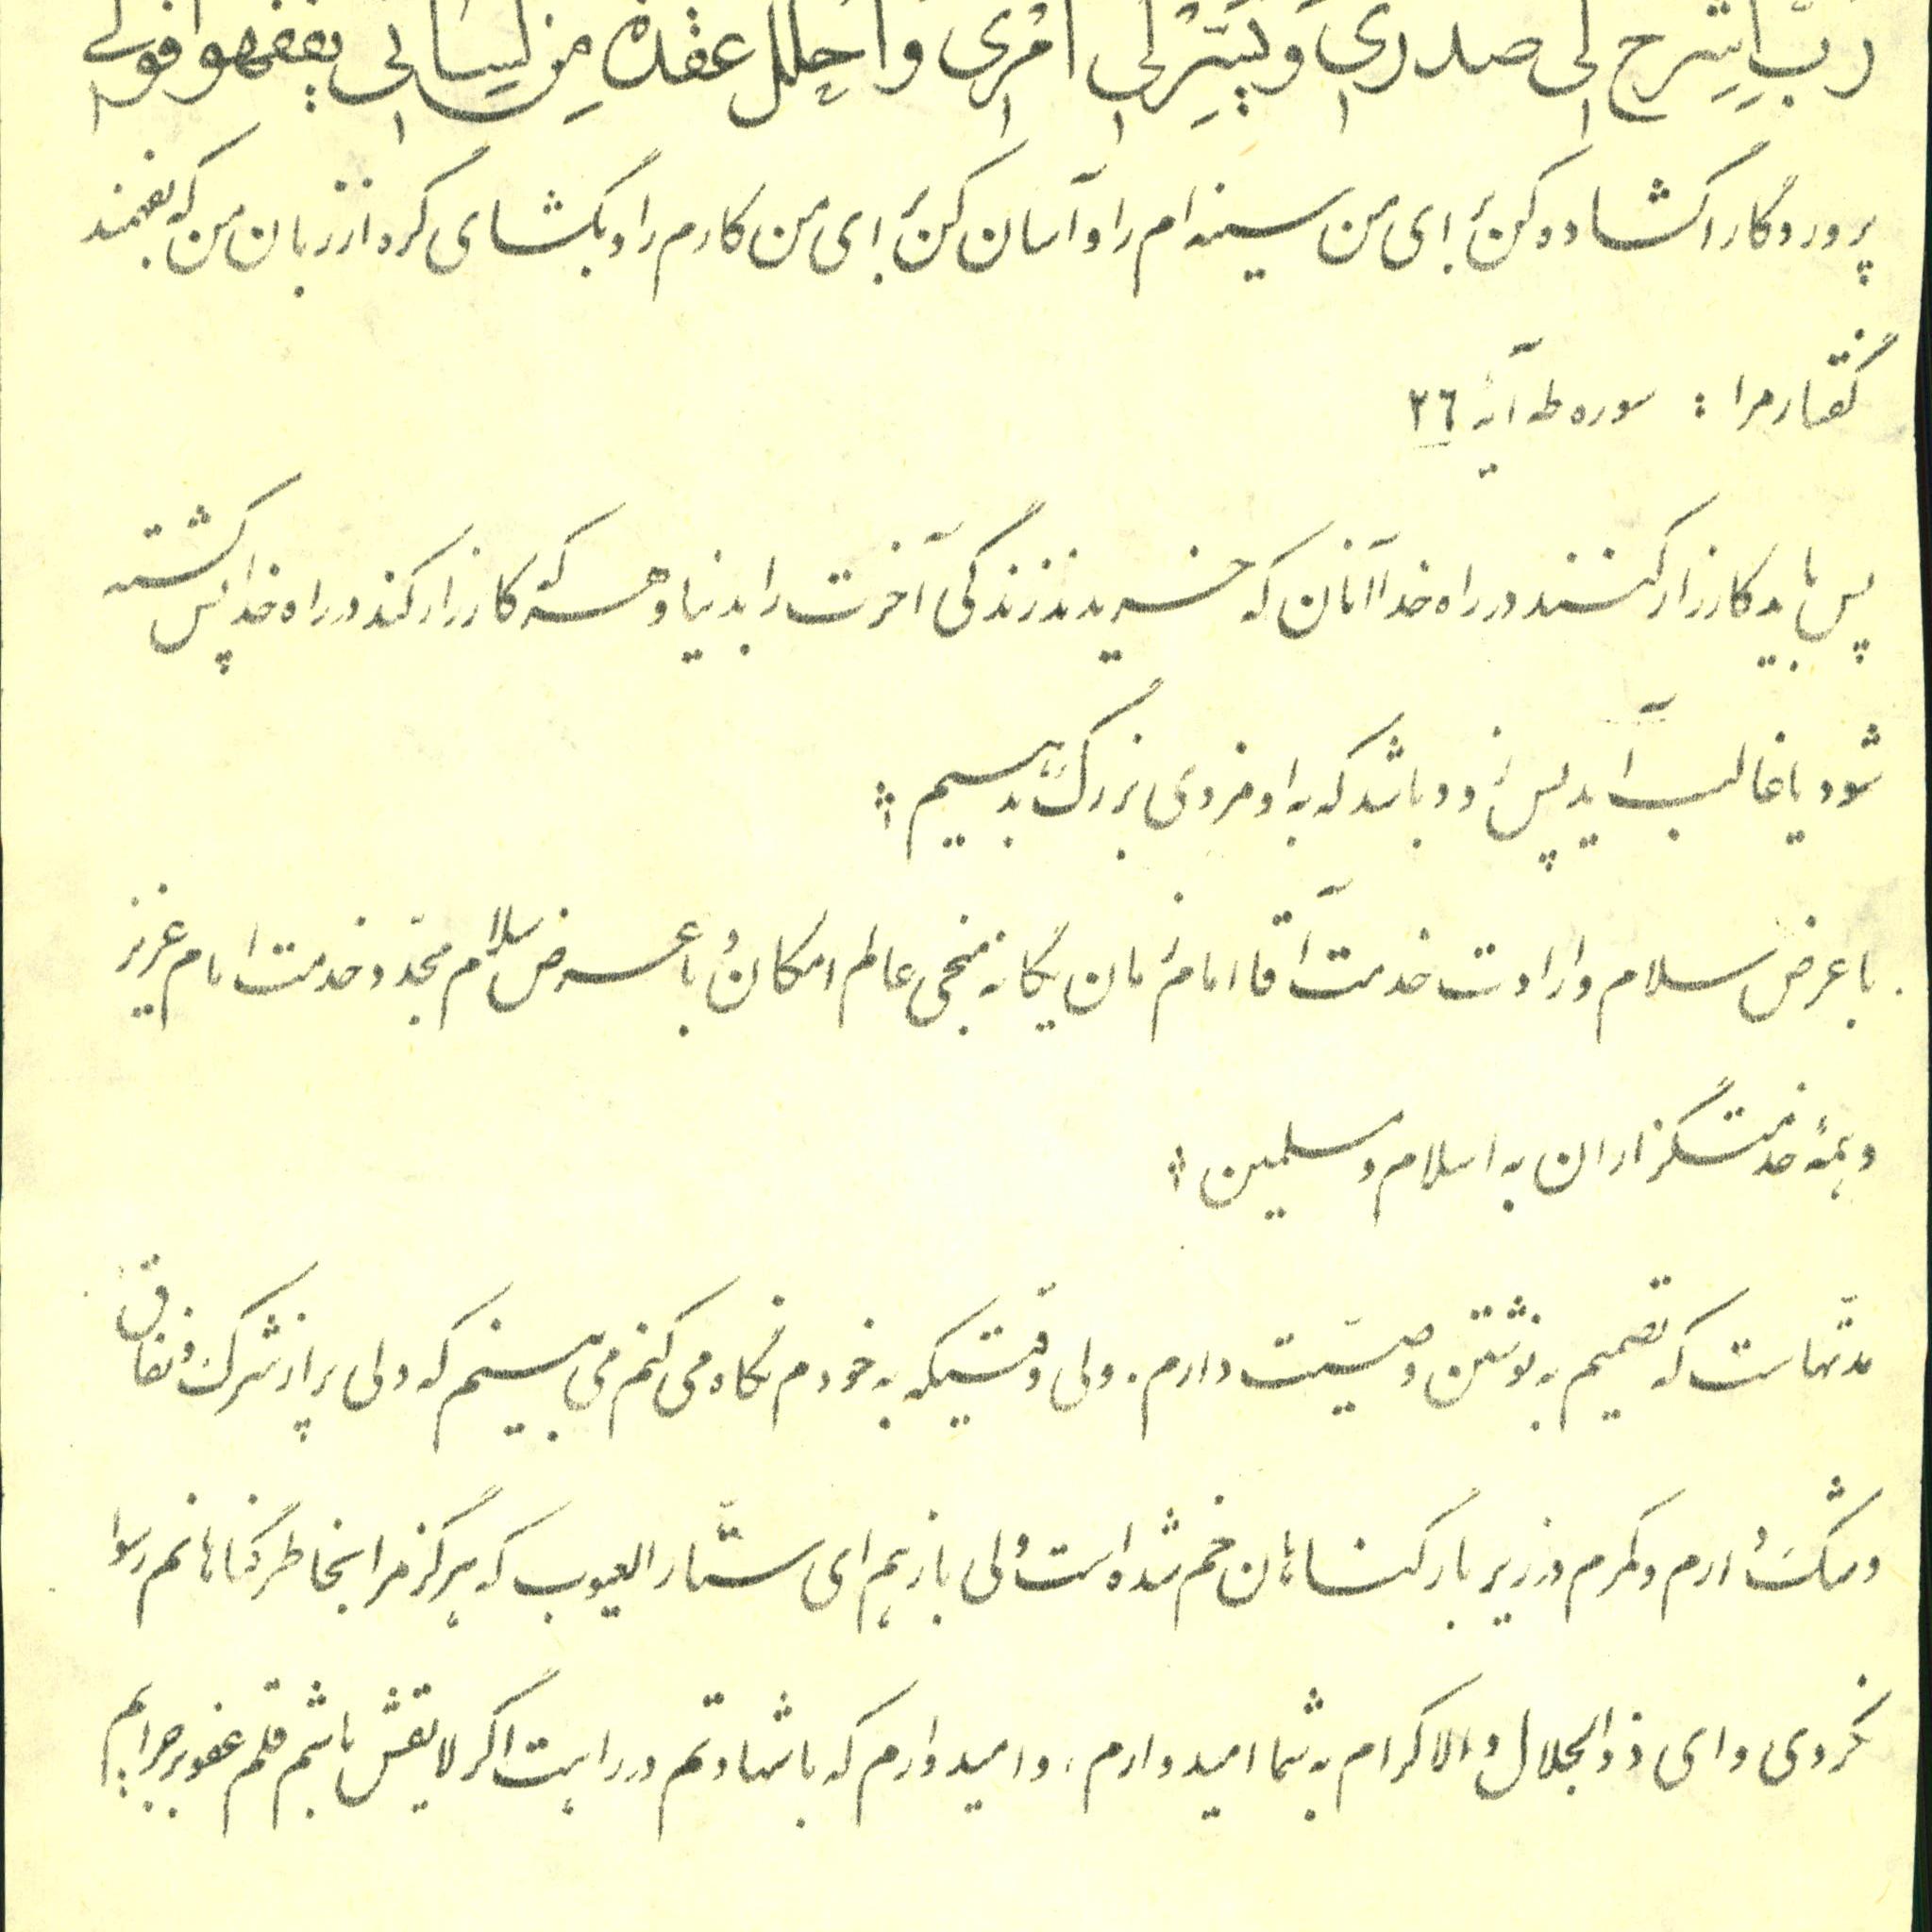 رَبِّ اشْرَح لی صدری وَ یَسِّرلی اَمْری وَاحْلُل عقدة مِن لِسانی یفقهوا قولی
پروردگارا گشاده کن برای من سینه‌ام را و آسان کن برای من کارم را و بگشای گره از زبان من که بفهمند
گفتار مرا : سوره طه آیهٔ ۲٦
پس باید کارزار کنند در راه خدا آنان که خریدند زندگی آخرت را بدنیا و هر که کارزار کند در راه خدا پس کشته
شود یا غالب آید پس زود باشد که به او مزدی بزرگ بدهیم
با عرض سلام و ارادت خدمت آقا امام زمان یگانه منجی عالم امکان و با عرض سلام مجدّد خدمت امام عزیز
و همهٔ خدمتگزاران به اسلام و مسلمین
مدّتهاست که تصمیم به نوشتن وصیّت دارم. ولی وقتیکه به خودم نگاه می کنم می بینم که دلی پر از شرک و نفاق
و شک دارم و کمرم در زیر بار گناهان خم شده است ولی باز هم ای ستّار العیوب که هرگز مرا بخاطر گناهانم رسوا
نکردی و ای ذوالجلال و الاکرام به شما امیدوارم، و امیدوارم که با شهادتم در راهت اگر لایقش باشم قلم عفو بر جرایم